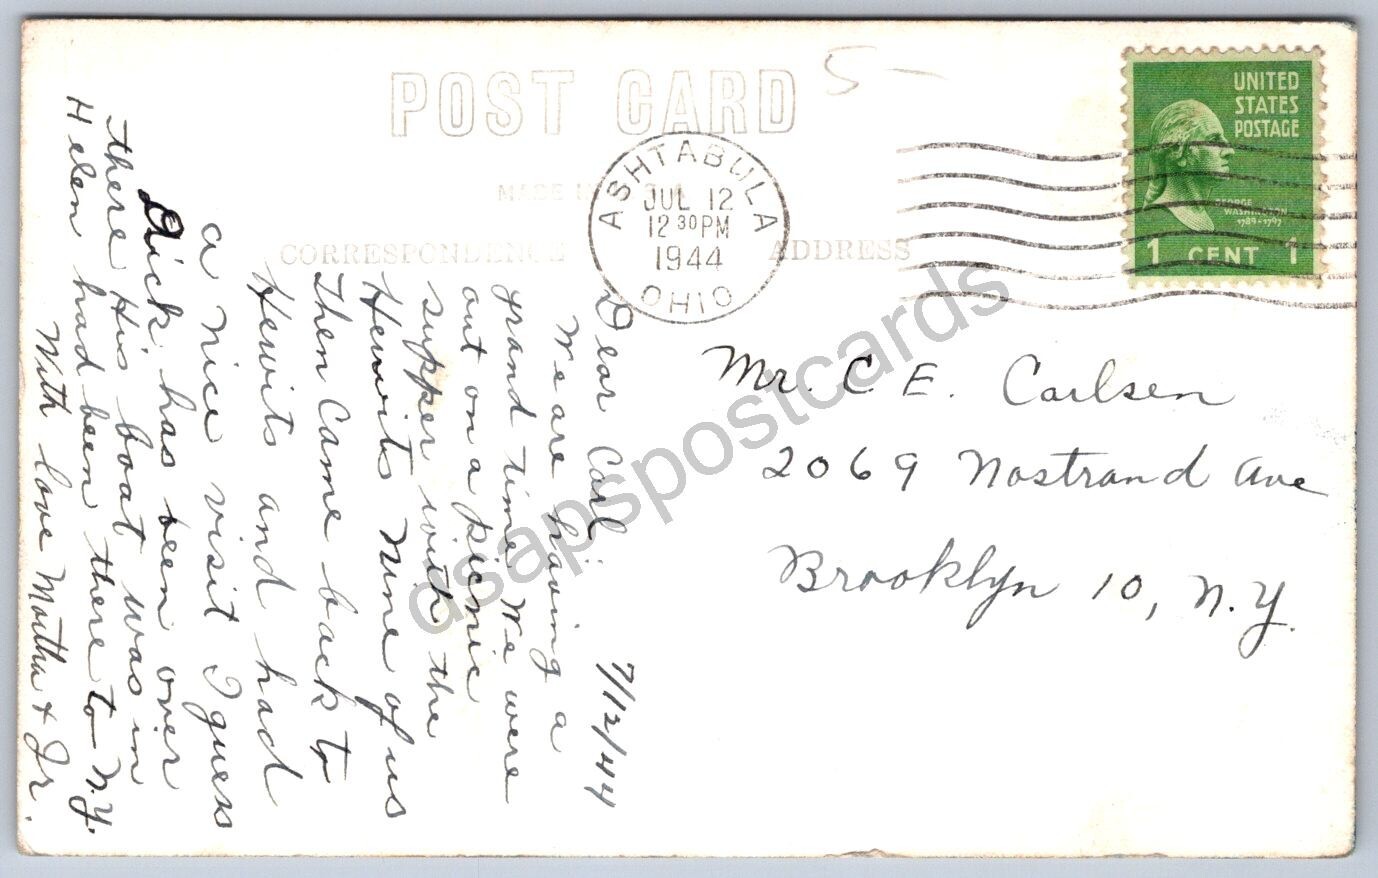 POST CARD
5-
ASHTABULA
JUL 12
12 30 PM
1944
OHIO
UNITED
STATES
POSTAGE
GEORGE
WASHINGTON
1789-1797
1 CENT 1
MADE
CORRESPONDENCE
ADDRESS
Mr. C E. Carlsen
2069 Nostrand Ave
Brooklyn 10, N.Y.
7/12/44
Dear Carl:
We are having a
grand time. We were
out on a picnic
supper with the
Hewits Nine of us
Then Came back to
Hewits and had
a nice visit I guess
Dick has been over
there His boat was in
Helen had been there to N.Y.
With love Martha & Jr.
dsapspostcards